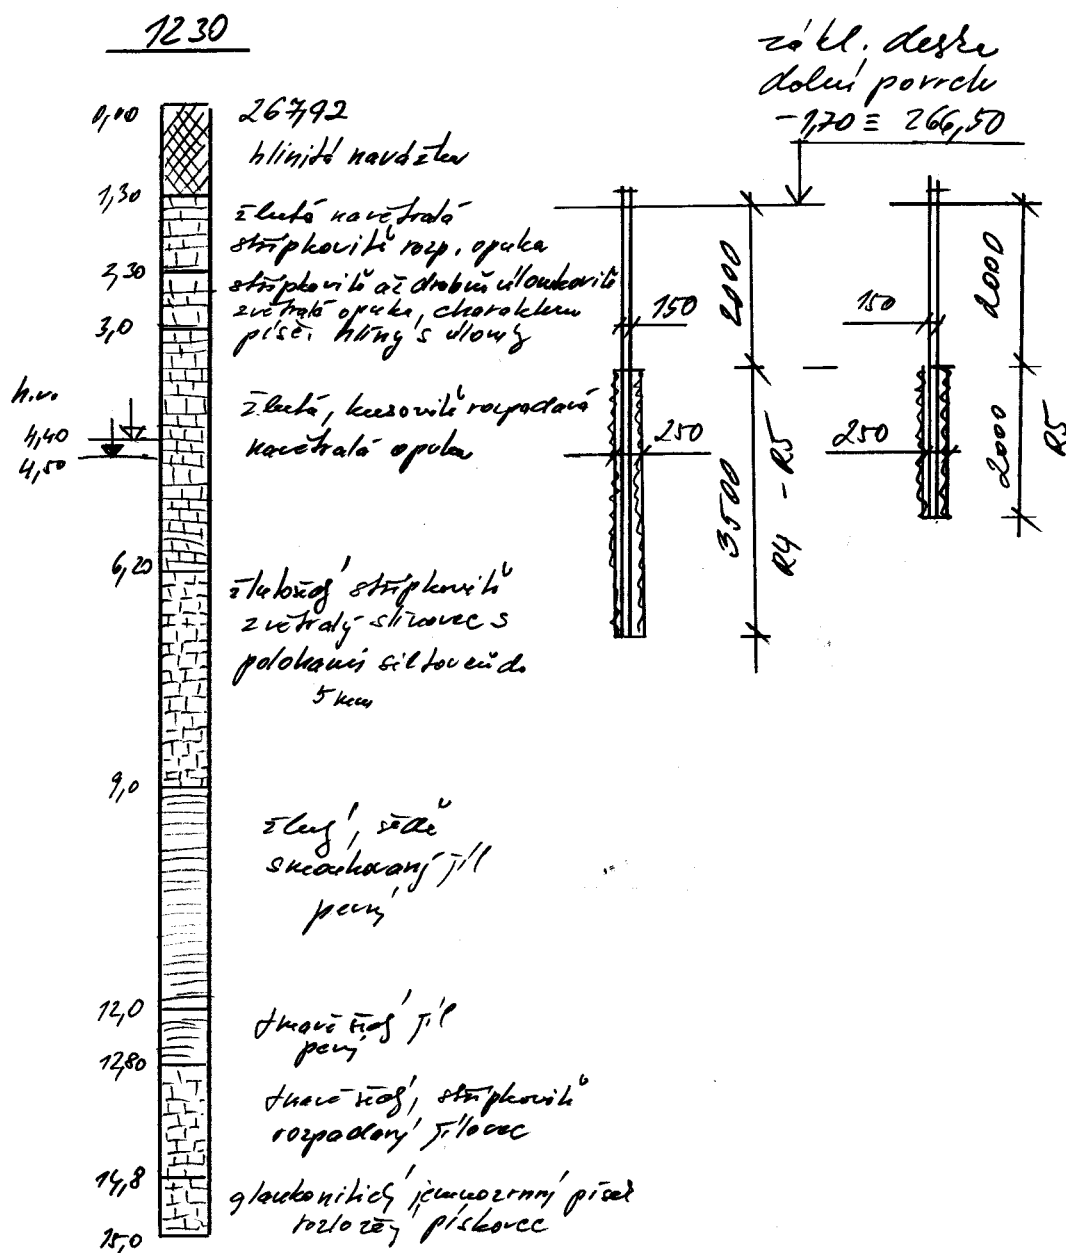 1230
zákl. deska
dolní povrch
-1,70 ≡ 266,50
0,00
267,92
hlinitá navážka
1,30
žlutá navětralá
střípkovitě rozp. opuka
2,30
střípkovitě až drobně úlomkovitě
zvětralá opuka, charakteru
písč. hlíny s úlomky
3,0
h.v.
4,40
4,50
žlutá, kusovitě rozpadavá
navětralá opuka
6,20
žlutošedý střípkovitě
zvětralý slínovec s
polohami siltovců do
5 mm
9,0
žlutý, šedě
smouhovaný jíl
pevný
12,0
tmavě šedý jíl
pevný
12,80
tmavě šedý, střípkovitě
rozpadavý jílovec
14,8
glaukonitický jemnozrnný písek
rozložený pískovec
15,0
150
2000
250
3500
R4 - R5
150
2000
250
2000
R5